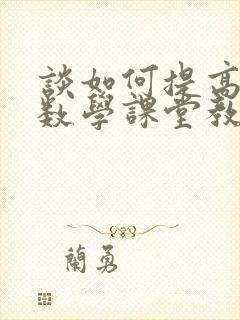 談如何提高
數學課堂教
蘭勇